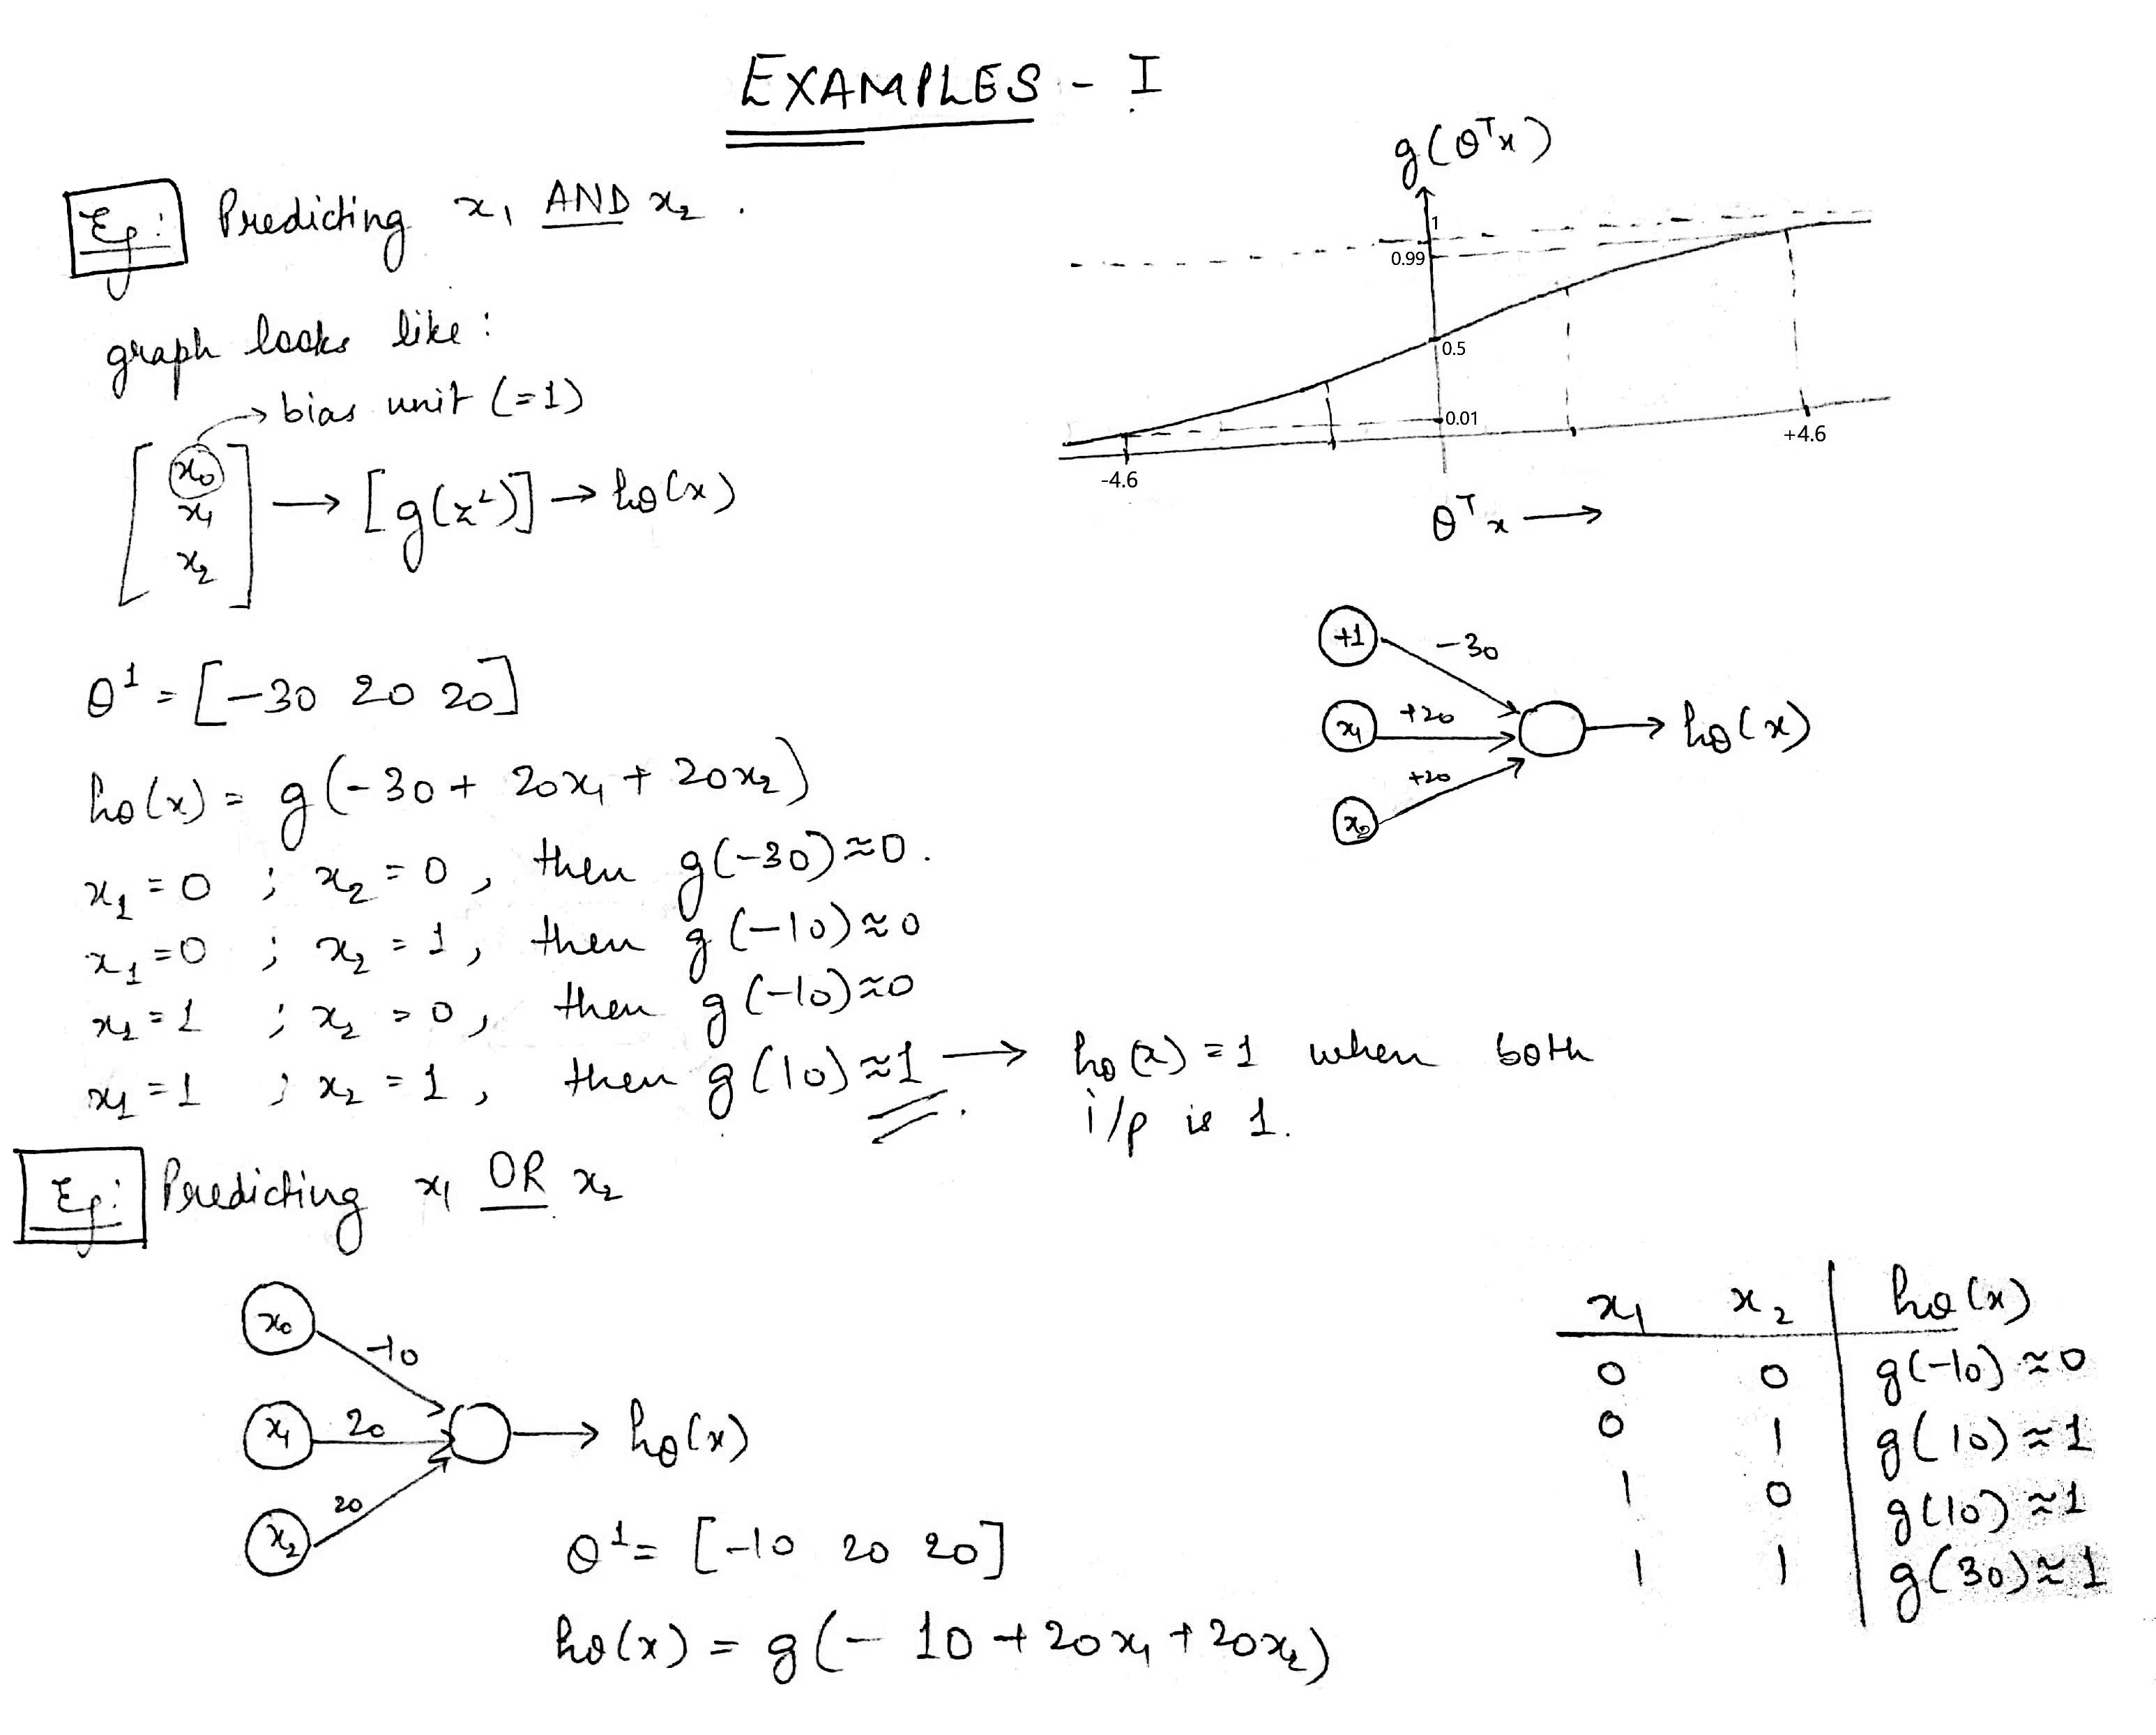 EXAMPLES - I
Eg: Predicting x₁ AND x₂ .
graph looks like :
bias unit (=1)
[x₀ x₁ x₂] → [g(z²)] → hθ(x)
g(θᵀx)
1
0.99
0.5
0.01
-4.6
+4.6
θᵀx →
θ¹ = [-30 20 20]
hθ(x) = g(-30 + 20x₁ + 20x₂)
+1 -30
x₁ +20 → hθ(x)
x₂ +20
x₁ = 0 ; x₂ = 0, then g(-30) ≈ 0.
x₁ = 0 ; x₂ = 1, then g(-10) ≈ 0
x₁ = 1 ; x₂ = 0, then g(-10) ≈ 0
x₁ = 1 ; x₂ = 1, then g(10) ≈ 1 → hθ(x) = 1 when both
i/p is 1.
Eg: Predicting x₁ OR x₂
x₀ -10
x₁ 20 → hθ(x)
x₂ 20
θ¹ = [-10 20 20]
hθ(x) = g(- 10 + 20x₁ + 20x₂)
x₁ x₂ hθ(x)
0 0 g(-10) ≈ 0
0 1 g(10) ≈ 1
1 0 g(10) ≈ 1
1 1 g(30) ≈ 1